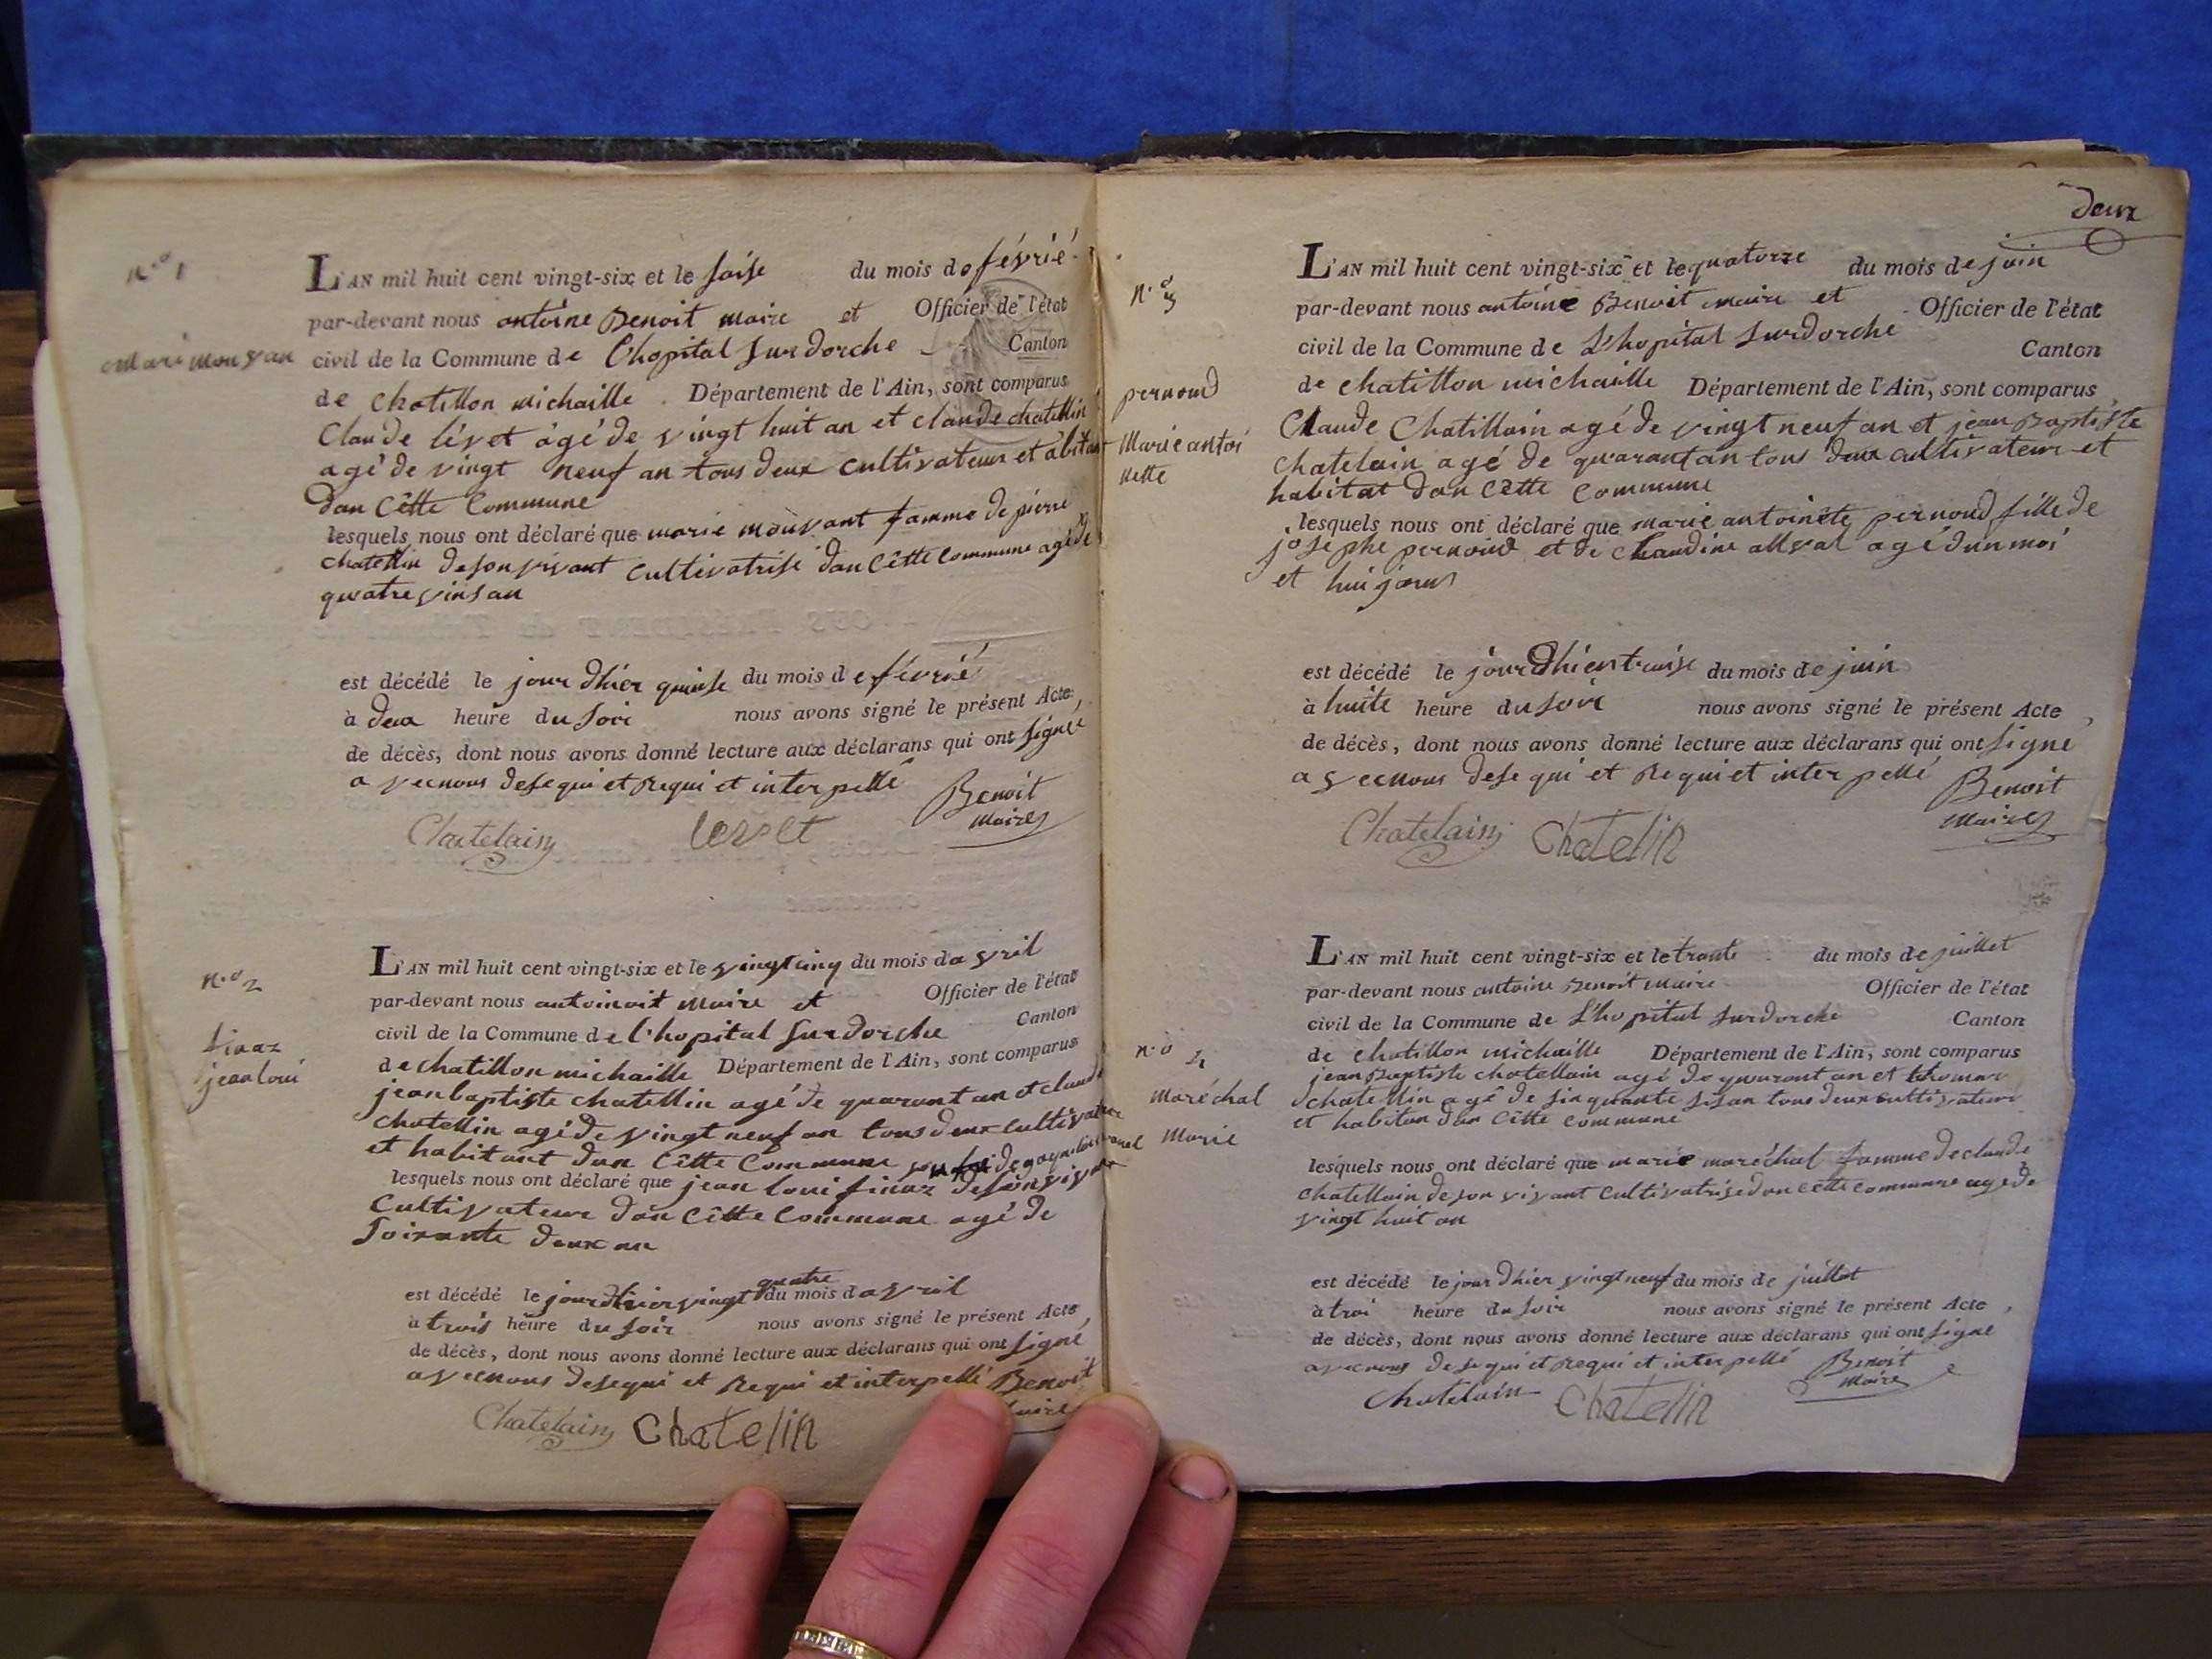 n.o 1
mari mouvan
L'AN mil huit cent vingt-six et le saise du mois de févrié
par-devant nous antoine Benoit maire et Officier de l'état
civil de la Commune de l'hopital surdorche Canton
de chatillon michaille . Département de l'Ain, sont comparus
Claude lévet agé de vingt huit an et claude chatellin
agé de vingt neuf an tous deux cultivateur et abitant
dan cêtte commune
lesquels nous ont déclaré que marie mouvant famme de pierre
chatellin desonvivant cultivatrise dan cêtte commune agé de
quatre vins an
est décédé le jour dhier quinse du mois de févrié
à deux heure du soir nous avons signé le présent Acte
de décès, dont nous avons donné lecture aux déclarans qui ont signé
avecnous desequi et requi et interpellé Benoit
Chatelain levet maire
n.o 2
finaz
jean loui
L'AN mil huit cent vingt-six et le vingt cinq du mois davril
par-devant nous antoinoit maire et Officier de l'état
civil de la Commune de l'hopital surdorche Canton
de chatillon michaille Département de l'Ain, sont comparus
jean baptiste chatellin agé de quarant an et claude
chatellin agé de vingt neuf an tous deux cultivateur
et habitant dan cêtte commune
lesquels nous ont déclaré que jean loui finaz desonvivant
cultivateur dan cêtte commune agé de
soixante deux an
quatre
est décédé le jour dhier vingt du mois davril
à trois heure du soir nous avons signé le présent Acte
de décès, dont nous avons donné lecture aux déclarans qui ont signé
avecnous desequi et requi et interpellé Benoit
Chatelain chatelin
deux
n.o 3
pernoud
Marie antoi
nette
L'AN mil huit cent vingt-six et le quatorze du mois de juin
par-devant nous antoine Benoit maire et Officier de l'état
civil de la Commune de L'hopital surdorche Canton
de chatillon michaille Département de l'Ain, sont comparus
Claude Chatillain agé de vingt neuf an et jean Baptiste
chatelain agé de quarant an tous deux cultivateur et
habitat dan cêtte commune
lesquels nous ont déclaré que marie antoinête pernoud fille de
josephe pernoud et de claudine allval agé dun moi
et hui jours
est décédé le jour dhier traise du mois de juin
à huite heure du soir nous avons signé le présent Acte ,
de décès, dont nous avons donné lecture aux déclarans qui ont signé
avecnous desequi et requi et interpellé Benoit
Chatelain chatelin maire
n.o 4
maréchal
Marie
L'AN mil huit cent vingt-six et le trante du mois de juillet
par-devant nous antoine Benoit maire Officier de l'état
civil de la Commune de L'hopital surdorche Canton
de chatillon michaille Département de l'Ain, sont comparus
jean Baptiste chatellain agé de quarant an et thomas
chatellin agé de sinquante sis an tous deux cultivateur
et habitan dan cêtte commune
lesquels nous ont déclaré que marie maréchal famme de claude
chatellain deson vivant cultivatrise dan cêtte commune agé de
vingt huit an
est décédé le jour dhier vingt neuf du mois de juillet
à troi heure du soir nous avons signé le présent Acte ,
de décès, dont nous avons donné lecture aux déclarans qui ont signé
avecnous desequi et requi et interpellé Benoit
chatelain chatelin maire